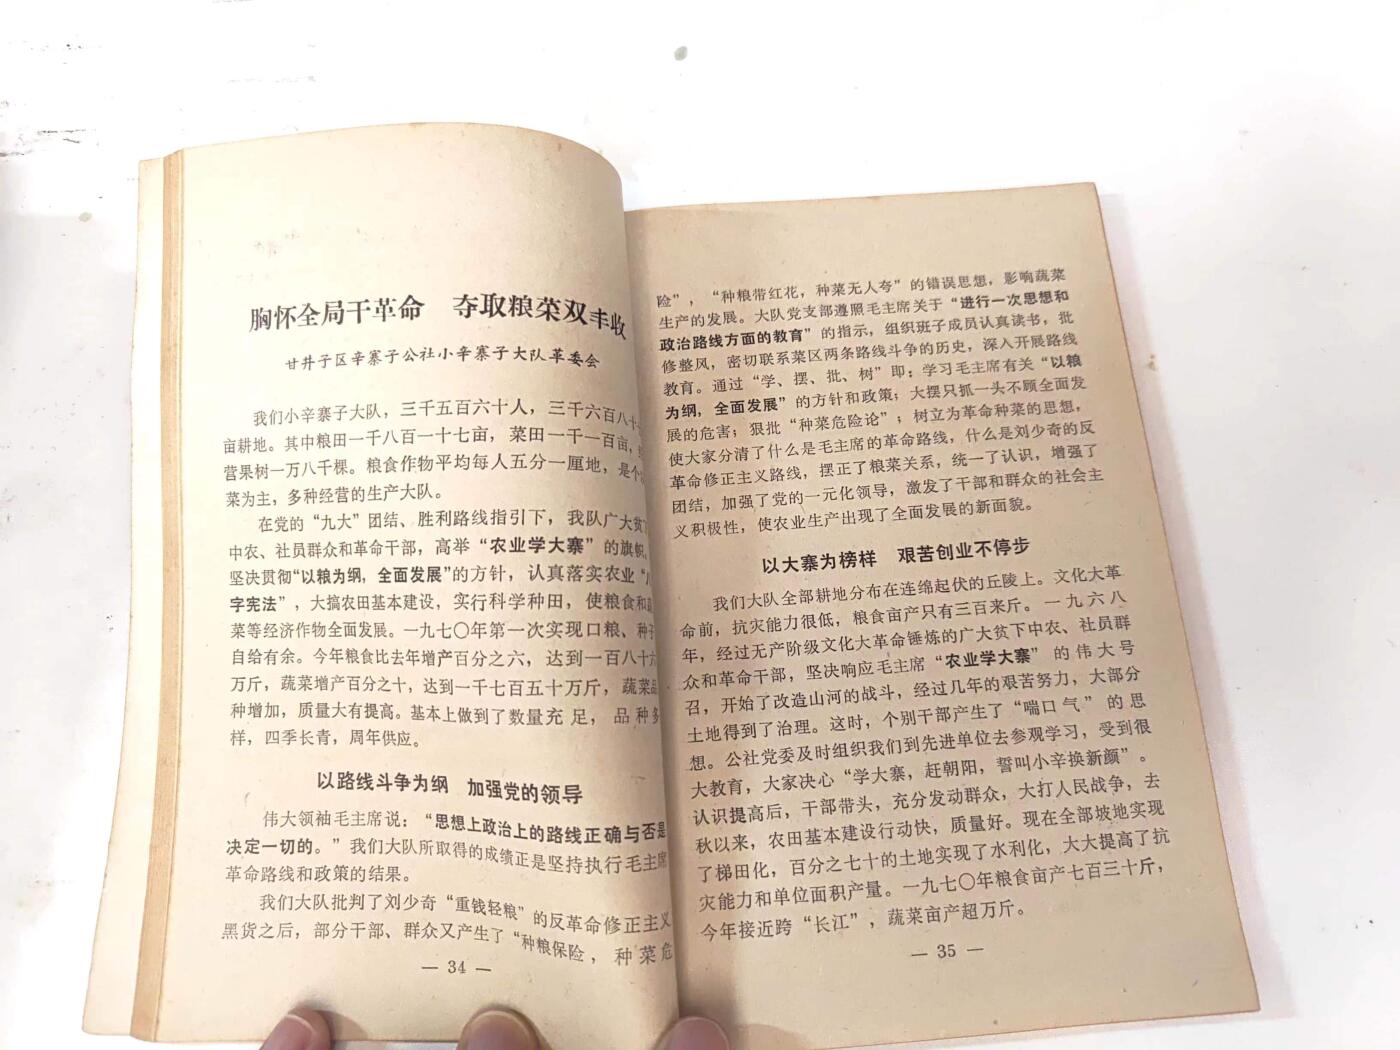 胸怀全局干革命　夺取粮菜双丰收
甘井子区辛寨子公社小辛寨子大队革委会
我们小辛寨子大队，三千五百六十人，三千六百八十
亩耕地。其中粮田一千八百一十七亩，菜田一千一百亩，
营果树一万八千棵。粮食作物平均每人五分一厘地，是个
菜为主，多种经营的生产大队。
在党的“九大”团结、胜利路线指引下，我队广大贫下
中农、社员群众和革命干部，高举“农业学大寨”的旗帜，
坚决贯彻“以粮为纲，全面发展”的方针，认真落实农业“八
字宪法”，大搞农田基本建设，实行科学种田，使粮食和蔬
菜等经济作物全面发展。一九七〇年第一次实现口粮、种子
自给有余。今年粮食比去年增产百分之六，达到一百八十六
万斤，蔬菜增产百分之十，达到一千七百五十万斤，蔬菜品
种增加，质量大有提高。基本上做到了数量充足，品种多
样，四季长青，周年供应。
以路线斗争为纲　加强党的领导
伟大领袖毛主席说：“思想上政治上的路线正确与否是
决定一切的。”我们大队所取得的成绩正是坚持执行毛主席
革命路线和政策的结果。
我们大队批判了刘少奇“重钱轻粮”的反革命修正主义
黑货之后，部分干部、群众又产生了“种粮保险，种菜危
— 34 —
险”，“种粮带红花，种菜无人夸”的错误思想，影响蔬菜
生产的发展。大队党支部遵照毛主席关于“进行一次思想和
政治路线方面的教育”的指示，组织班子成员认真读书，批
修整风，密切联系菜区两条路线斗争的历史，深入开展路线
教育。通过“学、摆、批、树”即：学习毛主席有关“以粮
为纲，全面发展”的方针和政策；大摆只抓一头不顾全面发
展的危害；狠批“种菜危险论”；树立为革命种菜的思想，
使大家分清了什么是毛主席的革命路线，什么是刘少奇的反
革命修正主义路线，摆正了粮菜关系，统一了认识，增强了
团结，加强了党的一元化领导，激发了干部和群众的社会主
义积极性，使农业生产出现了全面发展的新面貌。
以大寨为榜样　艰苦创业不停步
我们大队全部耕地分布在连绵起伏的丘陵上。文化大革
命前，抗灾能力很低，粮食亩产只有三百来斤。一九六八
年，经过无产阶级文化大革命锤炼的广大贫下中农、社员群
众和革命干部，坚决响应毛主席“农业学大寨”的伟大号
召，开始了改造山河的战斗，经过几年的艰苦努力，大部分
土地得到了治理。这时，个别干部产生了“喘口气”的思
想。公社党委及时组织我们到先进单位去参观学习，受到很
大教育，大家决心“学大寨，赶朝阳，誓叫小辛换新颜”。
认识提高后，干部带头，充分发动群众，大打人民战争，去
秋以来，农田基本建设行动快，质量好。现在全部坡地实现
了梯田化，百分之七十的土地实现了水利化，大大提高了抗
灾能力和单位面积产量。一九七〇年粮食亩产七百三十斤，
今年接近跨“长江”，蔬菜亩产超万斤。
— 35 —